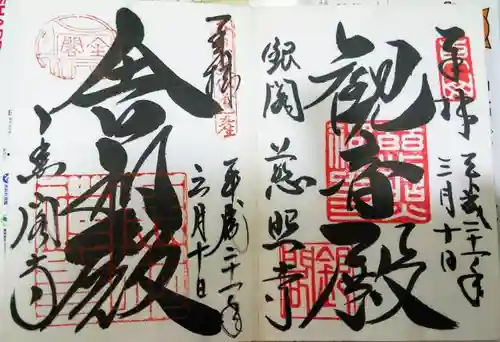 奉拝
平成三十一年
三月十日
観音殿
銀閣慈照寺
奉拝
平成三十一年
三月十日
舎利殿
金閣寺